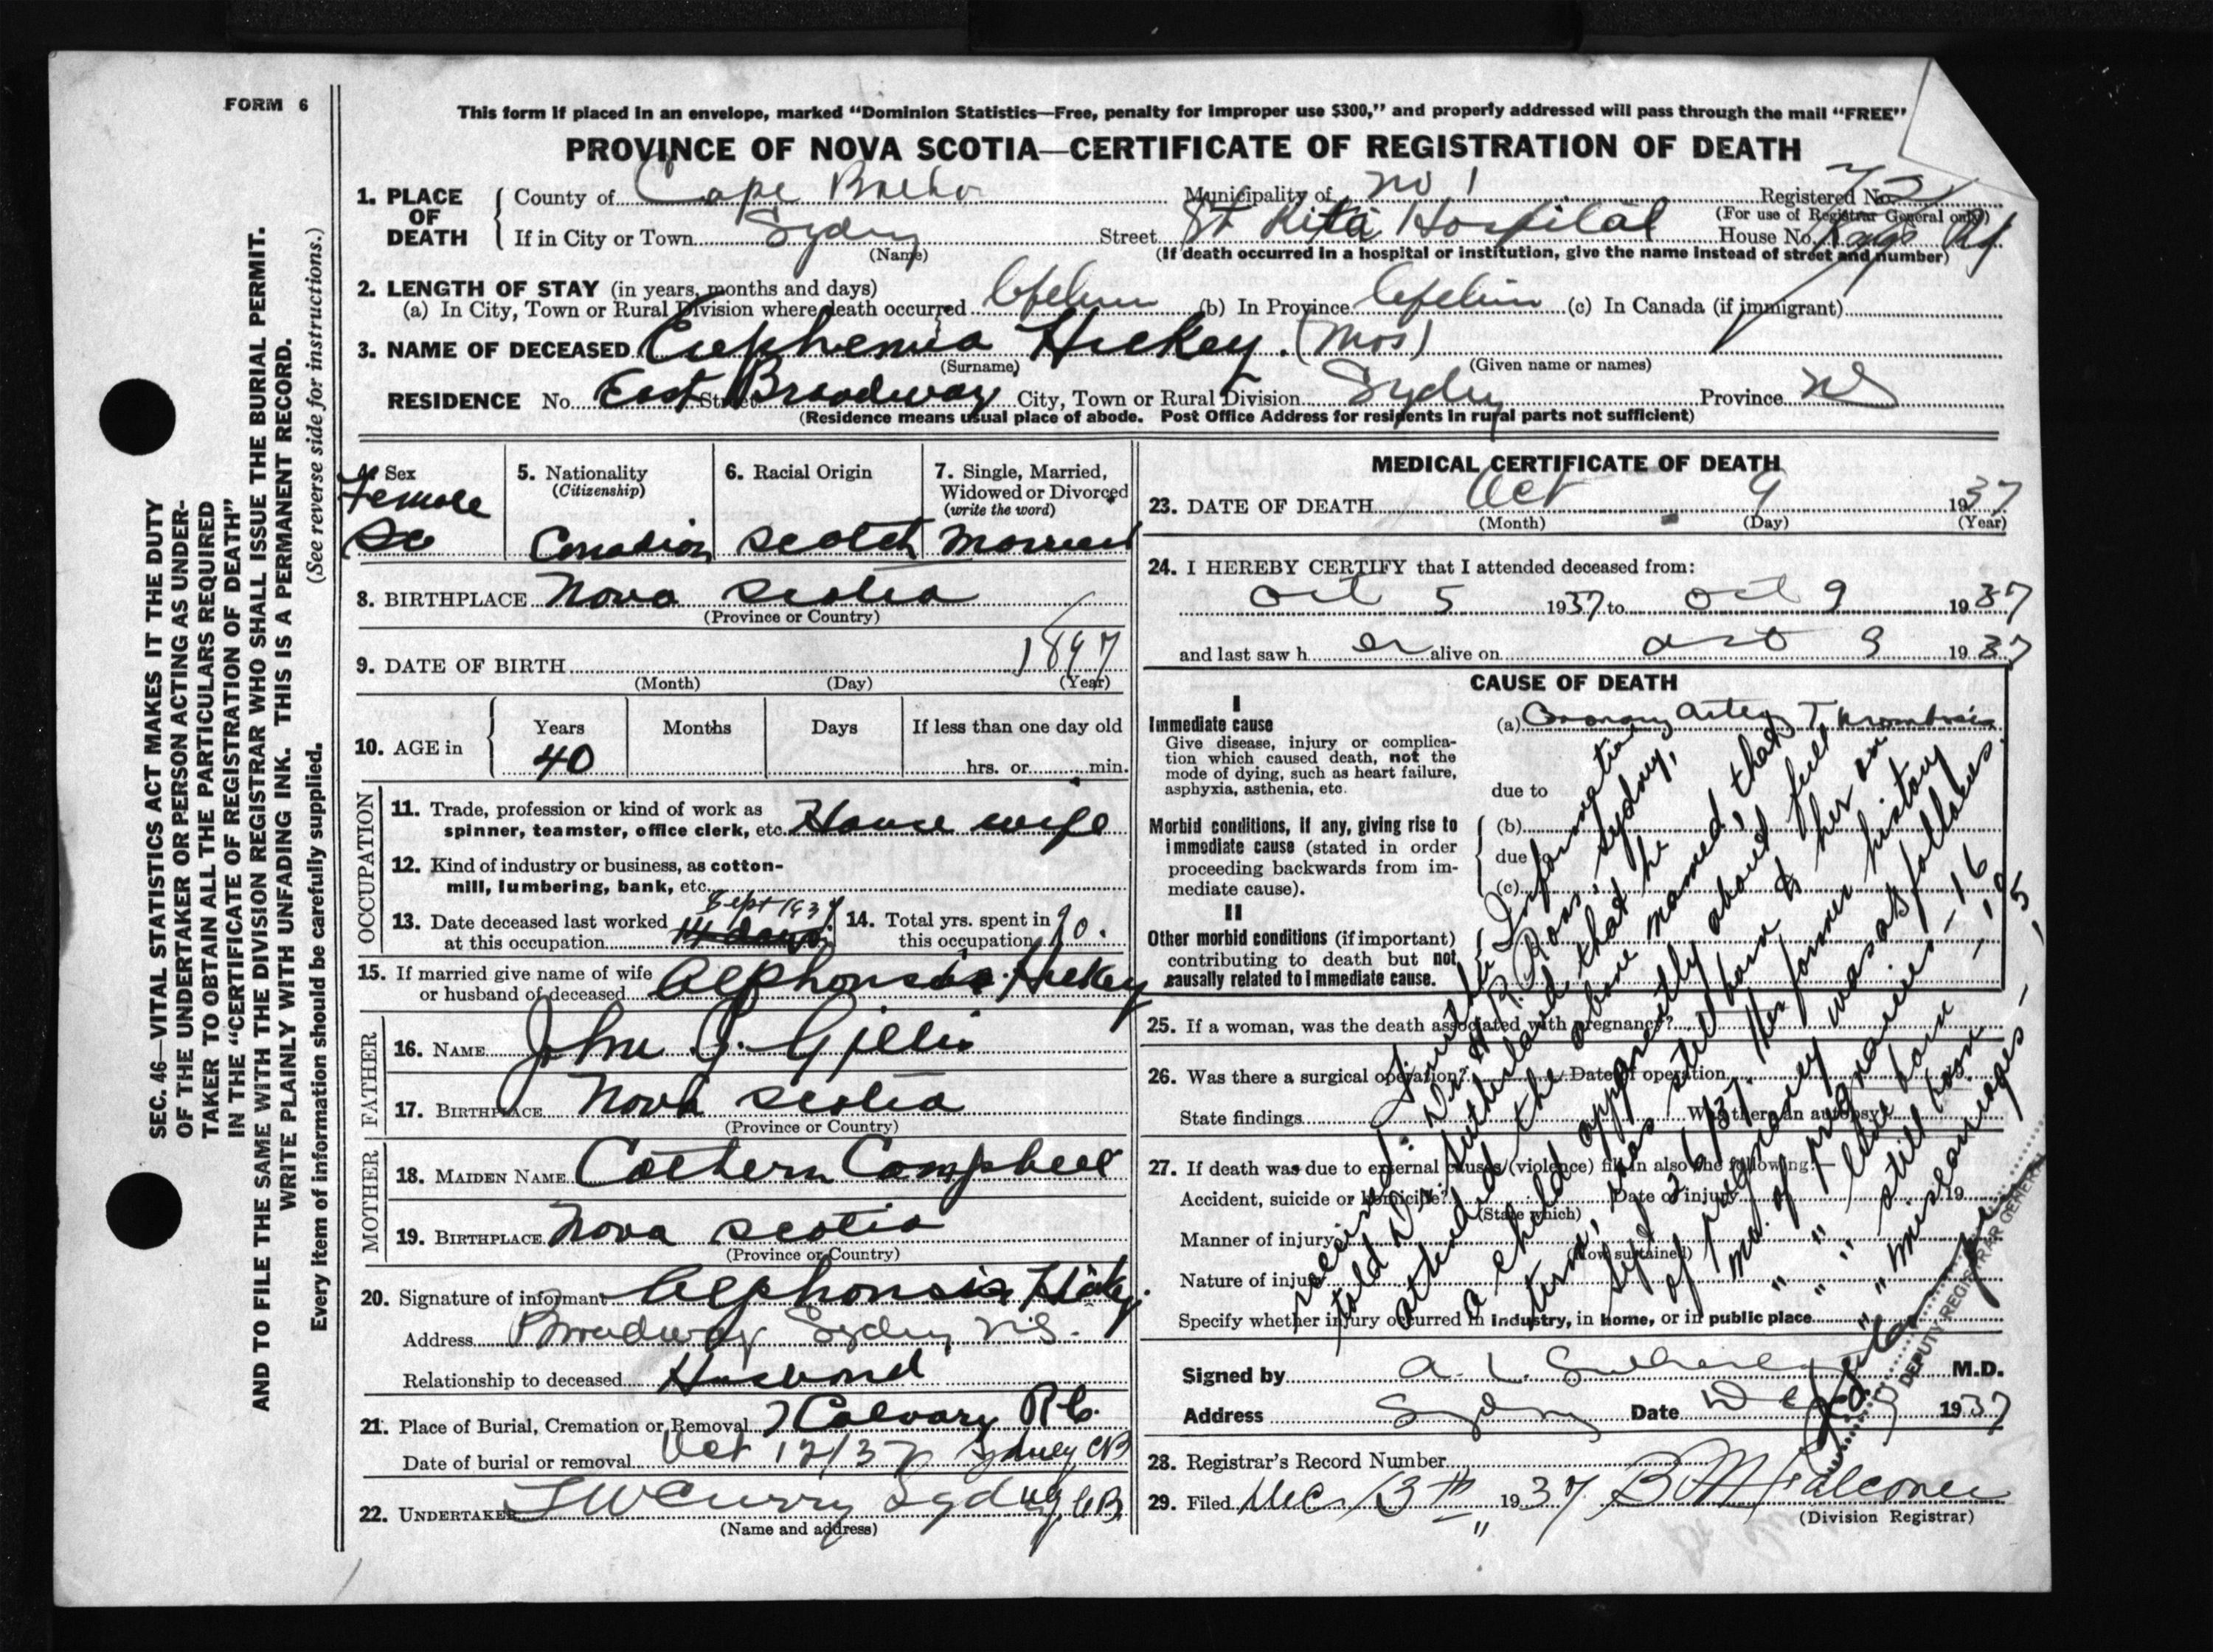 FORM 6
This form if placed in an envelope, marked “Dominion Statistics—Free, penalty for improper use $300,” and properly addressed will pass through the mail “FREE”
PROVINCE OF NOVA SCOTIA—CERTIFICATE OF REGISTRATION OF DEATH
1. PLACE OF DEATH County of Cape Breton Municipality of No 1 Registered No.
(For use of Registrar General only)
If in City or Town Sydney Street St Rita Hospital House No. Kings Rd
(Name) (If death occurred in a hospital or institution, give the name instead of street and number)
2. LENGTH OF STAY (in years, months and days)
(a) In City, Town or Rural Division where death occurred Lifetime (b) In Province Lifetime (c) In Canada (if immigrant)
3. NAME OF DECEASED Euphemia Hickey. (Mrs)
(Surname) (Given name or names)
RESIDENCE No. East Street Broadway City, Town or Rural Division Sydney Province NS
(Residence means usual place of abode. Post Office Address for residents in rural parts not sufficient)
SEC. 46—VITAL STATISTICS ACT MAKES IT THE DUTY
OF THE UNDERTAKER OR PERSON ACTING AS UNDER-
TAKER TO OBTAIN ALL THE PARTICULARS REQUIRED
IN THE “CERTIFICATE OF REGISTRATION OF DEATH”
AND TO FILE THE SAME WITH THE DIVISION REGISTRAR WHO SHALL ISSUE THE BURIAL PERMIT.
WRITE PLAINLY WITH UNFADING INK. THIS IS A PERMANENT RECORD.
Every item of information should be carefully supplied. (See reverse side for instructions.)
4. Sex
Female
5. Nationality
(Citizenship)
Canadian
6. Racial Origin
Scotch
7. Single, Married,
Widowed or Divorced
(write the word)
Married
8. BIRTHPLACE Nova Scotia
(Province or Country)
9. DATE OF BIRTH 1897
(Month) (Day) (Year)
10. AGE in
Years Months Days If less than one day old
40 hrs. or min.
OCCUPATION
11. Trade, profession or kind of work as
spinner, teamster, office clerk, etc. House wife
12. Kind of industry or business, as cotton-
mill, lumbering, bank, etc.
Sept 1937
13. Date deceased last worked 14. Total yrs. spent in
at this occupation 14 days this occupation 20.
15. If married give name of wife
or husband of deceased Alphonsis Hickey
FATHER
16. NAME John J. Gillis
17. BIRTHPLACE Nova Scotia
(Province or Country)
MOTHER
18. MAIDEN NAME Cathern Campbell
19. BIRTHPLACE Nova Scotia
(Province or Country)
20. Signature of informant Alphonsis Hickey
Address Broadway Sydney N.S.
Relationship to deceased Husband
21. Place of Burial, Cremation or Removal Calvary R.C.
Date of burial or removal Oct 12/37 Sydney CB
22. UNDERTAKER T W Curry Sydney, C.B.
(Name and address)
MEDICAL CERTIFICATE OF DEATH
23. DATE OF DEATH Oct 9 1937
(Month) (Day) (Year)
24. I HEREBY CERTIFY that I attended deceased from:
Oct 5 1937 to Oct 9 1937
and last saw h er alive on Oct 9 1937
CAUSE OF DEATH
I
Immediate cause
Give disease, injury or complica-
tion which caused death, not the
mode of dying, such as heart failure,
asphyxia, asthenia, etc.
(a) Coronary Artery Thrombosis
due to
Morbid conditions, if any, giving rise to
immediate cause (stated in order
proceeding backwards from im-
mediate cause).
(b)
due to
(c)
II
Other morbid conditions (if important)
contributing to death but not
causally related to immediate cause.
25. If a woman, was the death associated with pregnancy?
26. Was there a surgical operation? Date of operation
State findings Was there an autopsy?
27. If death was due to external causes (violence) fill in also the following:—
Accident, suicide or homicide? Date of injury 19
(State which)
Manner of injury
(How sustained)
Nature of injury
Specify whether injury occurred in industry, in home, or in public place
Further Information
received: Dr H. R. Ross, Sydney,
told Dr. Sutherland that he
attended the above named, that
a child apparently about full
term, was still born to her on
Sept 26/37. Her former history
of pregnancy was as follows.
No. of pregnancies - 16
" " live born - 10
" " still born - 5
" " miscarriages - 1
DEPUTY REGISTRAR GENERAL
Signed by A. L. Sutherland M.D.
Address Sydney Date Dec 1937
28. Registrar’s Record Number
29. Filed Dec 13th 1937 B M Falconer
(Division Registrar)